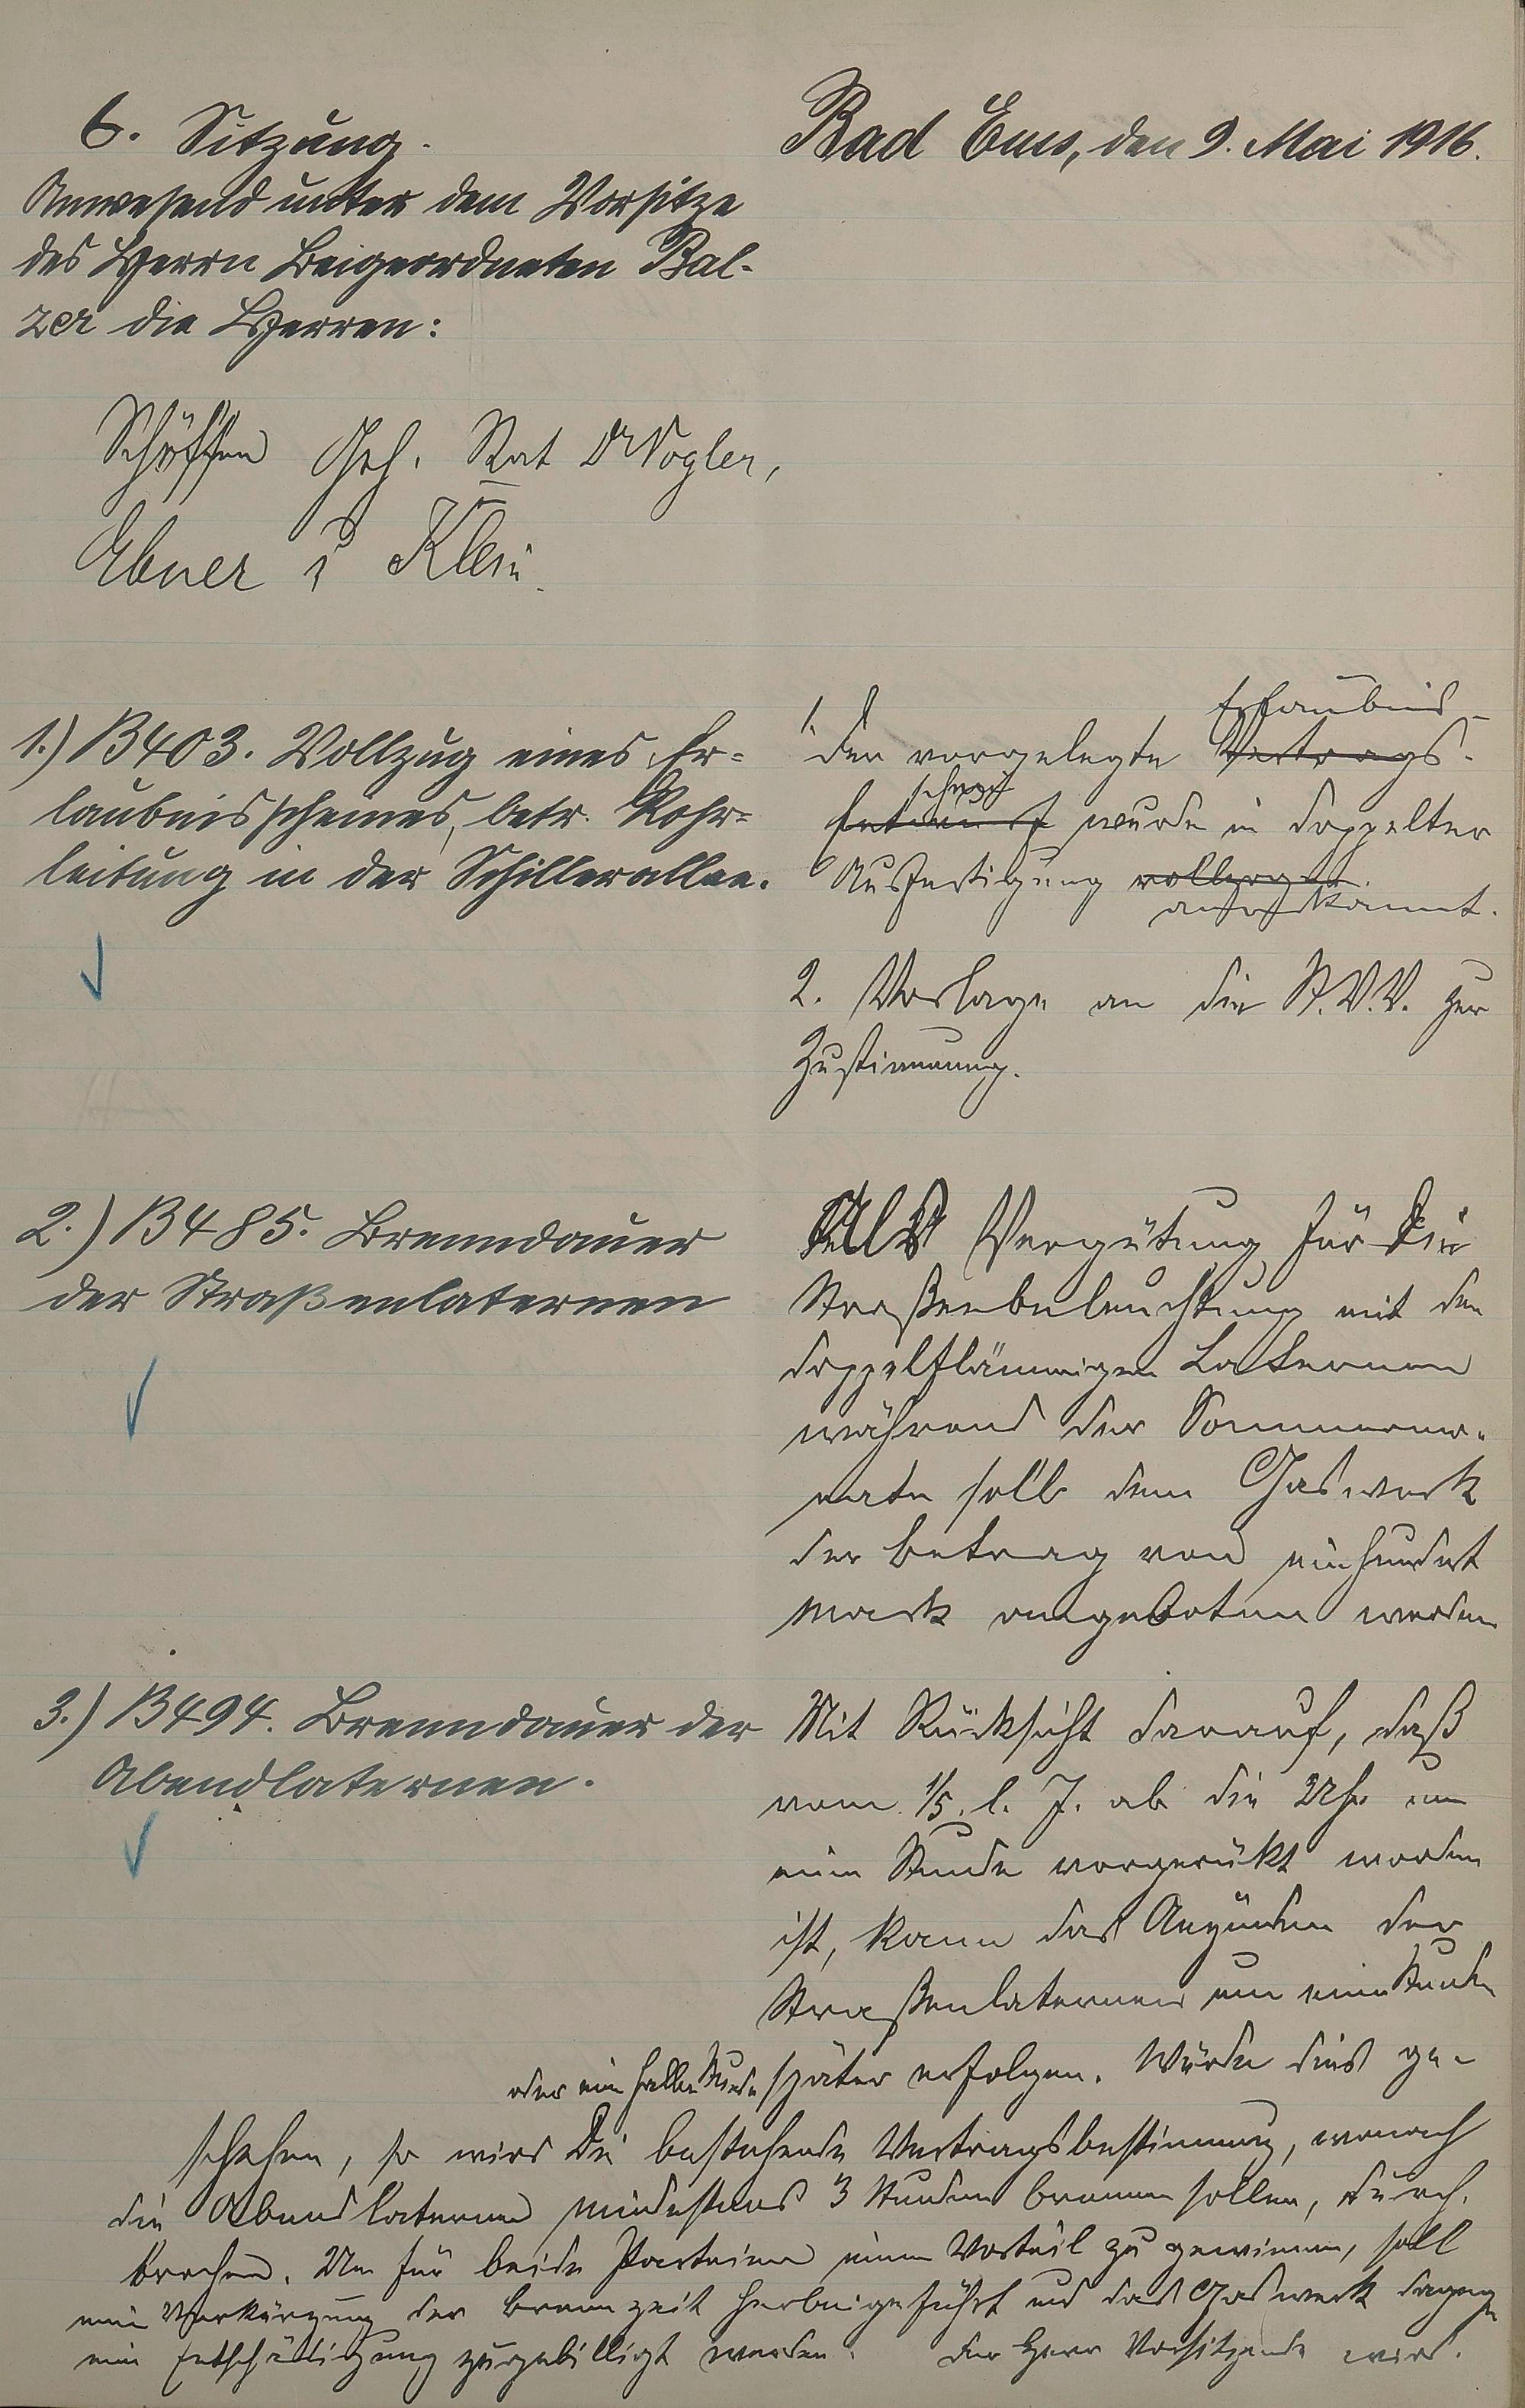 6. Sitzung.
Bad Ems, den 9. Mai 1916.
Anwesend unter dem Vorsitze
des Herrn Beigeordneten Bal-
zer die Herren:
Schöffen Geh. Rat Dr Vogler,
Ebner u Klein.
1.) B 403. Vollzug eines Er-
laubnisscheines, betr. Rohr-
leitung in der Schillerallee.
Erlaubnis-
1. Der vorgelegte Vertrags-
schein
Entwurf wurde in doppelter
Ausfertigung vollzogen.
anerkannt.
2. Vorlage an die St.V.V. zur
Zustimmung.
2.) B 485. Brenndauer
der Straßenlaternen
Als Vergütung für die
Straßenbeleuchtung mit den
doppelflammigen Laternen
während der Sommermo-
nate soll dem Gaswerk
der Betrag von einhundert
Mark angeboten werden
3.) B 494. Brenndauer der
Abendlaternen.
Mit Rücksicht darauf, daß
vom 1/5. l. J. ab die Uhr um
eine Stunde vorgerückt worden
ist, kann das Anzünden der
Straßenlaternen um eine Stunde
oder eine halbe Stunde später erfolgen. Würde dies ge-
schehen, so wird die bestehende Vertragsbestimmung, wonach
die Abendlaternen mindestens 3 Stunden brennen sollen, durch-
brochen. Um für beide Parteien einen Vorteil zu gewinnen, soll
eine Verkürzung der Brennzeit herbeigeführt und das Gaswerk dagegen
eine Entschädigung zugebilligt werden. Der Herr Vorsitzende wird.